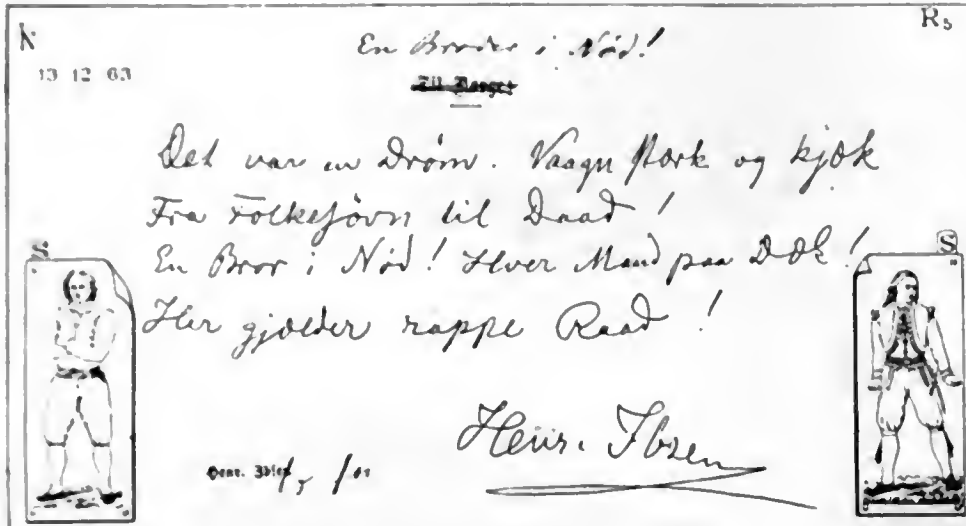 N R5
13 12 63
En Broder i Nød!
Til Norge
Det var en Drøm. Vaagn stærk og kjæk
Fra Folkesøvn til Daad!
En Bror i Nød! Hver Mand paa Dæk!
Her gjælder rappe Raad!
S S
Henr. Ibsen
Henr. Ibsen